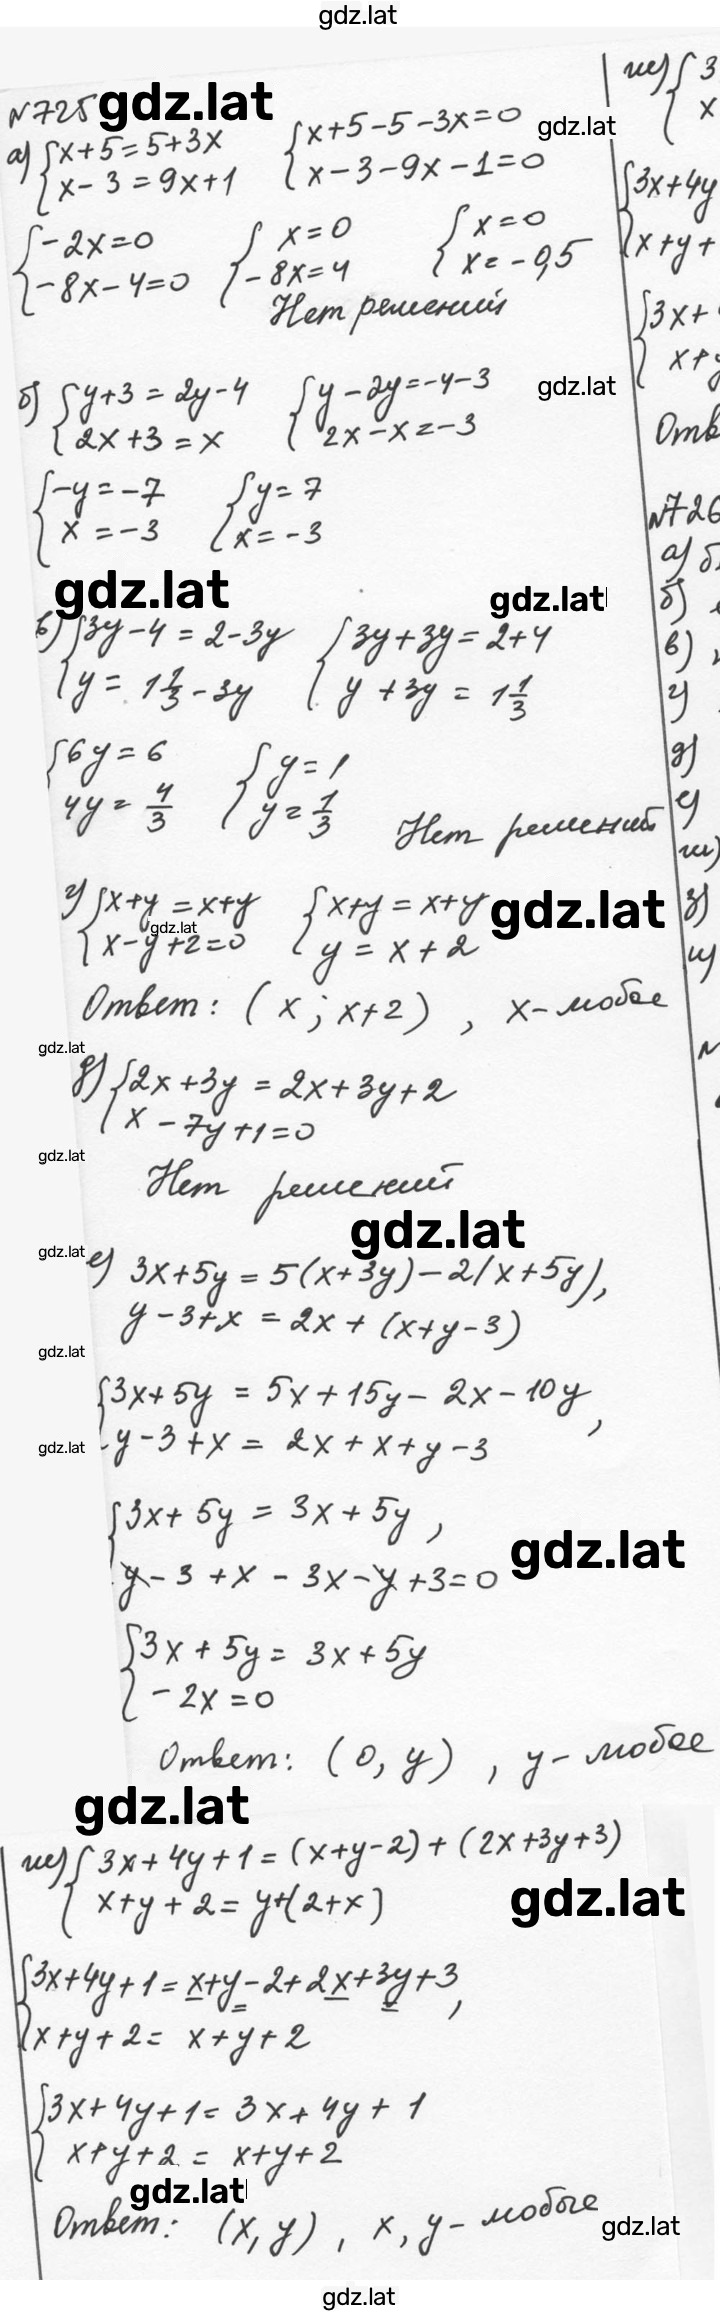 gdz.lat
N725 gdz.lat
а) {x+5=5+3x {x+5-5-3x=0 gdz.lat
{x-3=9x+1 {x-3-9x-1=0
{-2x=0 {x=0 {x=0
{-8x-4=0 {-8x=4 {x=-0,5
Нет решений
б) {y+3=2y-4 {y-2y=-4-3 gdz.lat
{2x+3=x {2x-x=-3
{-y=-7 {y=7
{x=-3 {x=-3
gdz.lat gdz.lat
в) {3y-4=2-3y {3y+3y=2+4
{y=1 1/3-3y {y+3y=1 1/3
{6y=6 {y=1
{4y=4/3 {y=1/3
Нет решений
г) {x+y=x+y {x+y=x+y gdz.lat
gdz.lat
{x-y+2=0 {y=x+2
Ответ: (x; x+2), x-любое
gdz.lat
д) {2x+3y=2x+3y+2
{x-7y+1=0
gdz.lat
Нет решений
gdz.lat
gdz.lat
е) 3x+5y=5(x+3y)-2(x+5y),
y-3+x=2x+(x+y-3)
gdz.lat
{3x+5y=5x+15y-2x-10y,
{y-3+x=2x+x+y-3
gdz.lat
{3x+5y=3x+5y,
gdz.lat
{y-3+x-3x-y+3=0
{3x+5y=3x+5y
{-2x=0
Ответ: (0, y), y-любое
gdz.lat
ж) {3x+4y+1=(x+y-2)+(2x+3y+3)
{x+y+2=y+(2+x)
gdz.lat
{3x+4y+1=x+y-2+2x+3y+3,
{x+y+2=x+y+2
{3x+4y+1=3x+4y+1
{x+y+2=x+y+2
gdz.lat
Ответ: (x, y), x, y-любые
gdz.lat
gdz.lat
ж) {3
{x
{3x+4y
{x+y+
{3x+
{x+y
Отв
N726
а) б
б)
в)
г)
д)
е)
ж)
з)
и)
N